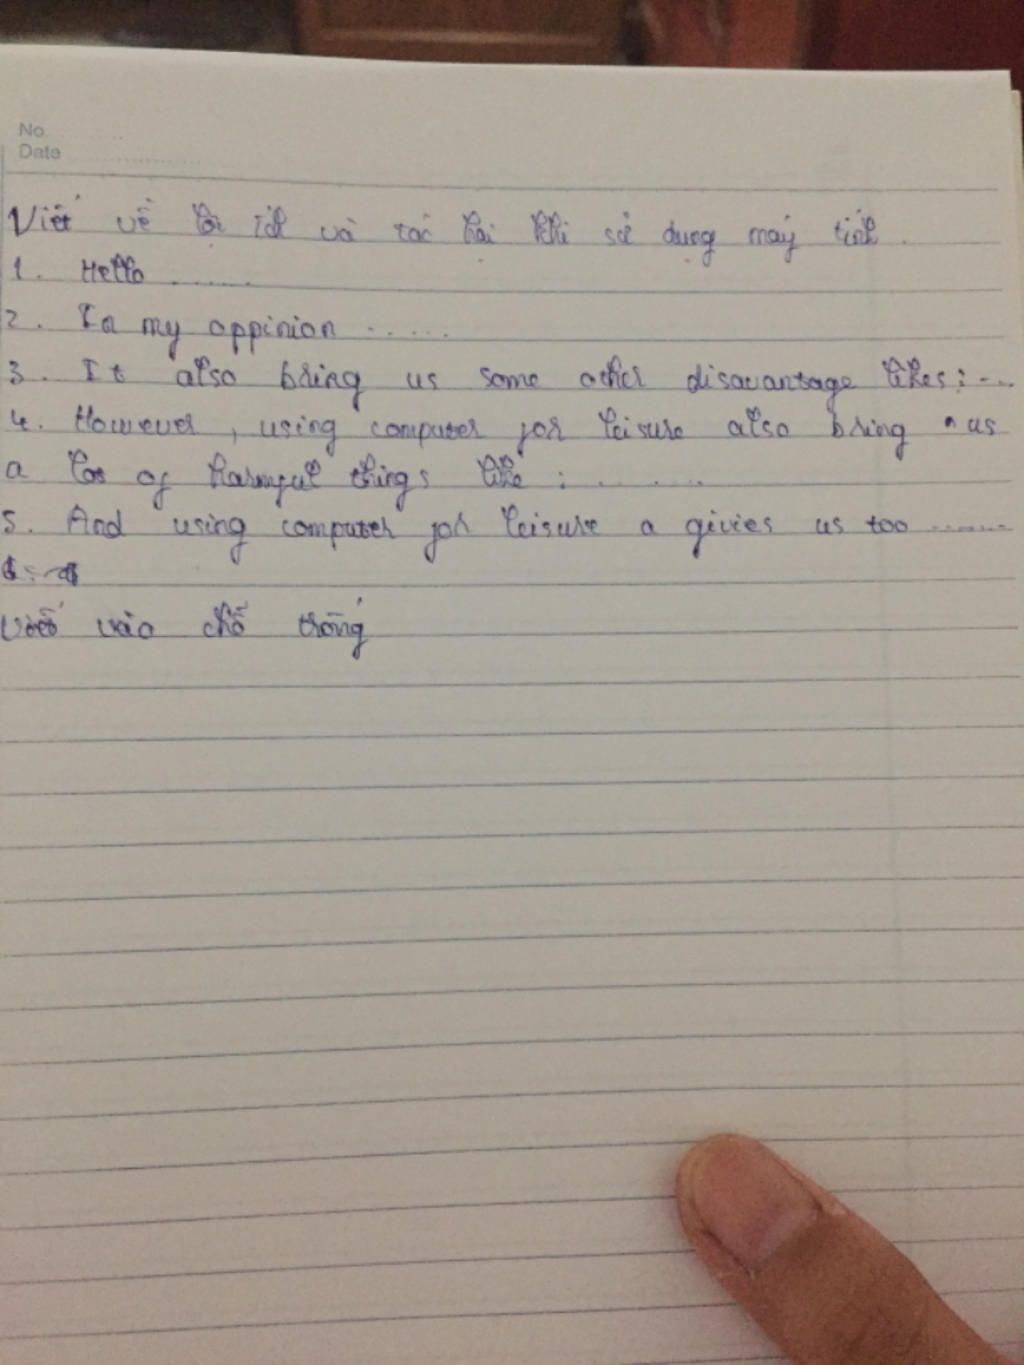 No
Date
Viết về lợi ích và tác hại khi sử dụng máy tính.
1. Hello .......
2. In my oppinion ......
3. It also bring us some other disavantage likes: ...
4. However, using computer for leisure also bring us
a lot of harmful things like : .......
5. And using computer for leisure a givies us too .......
viết vào chỗ trống